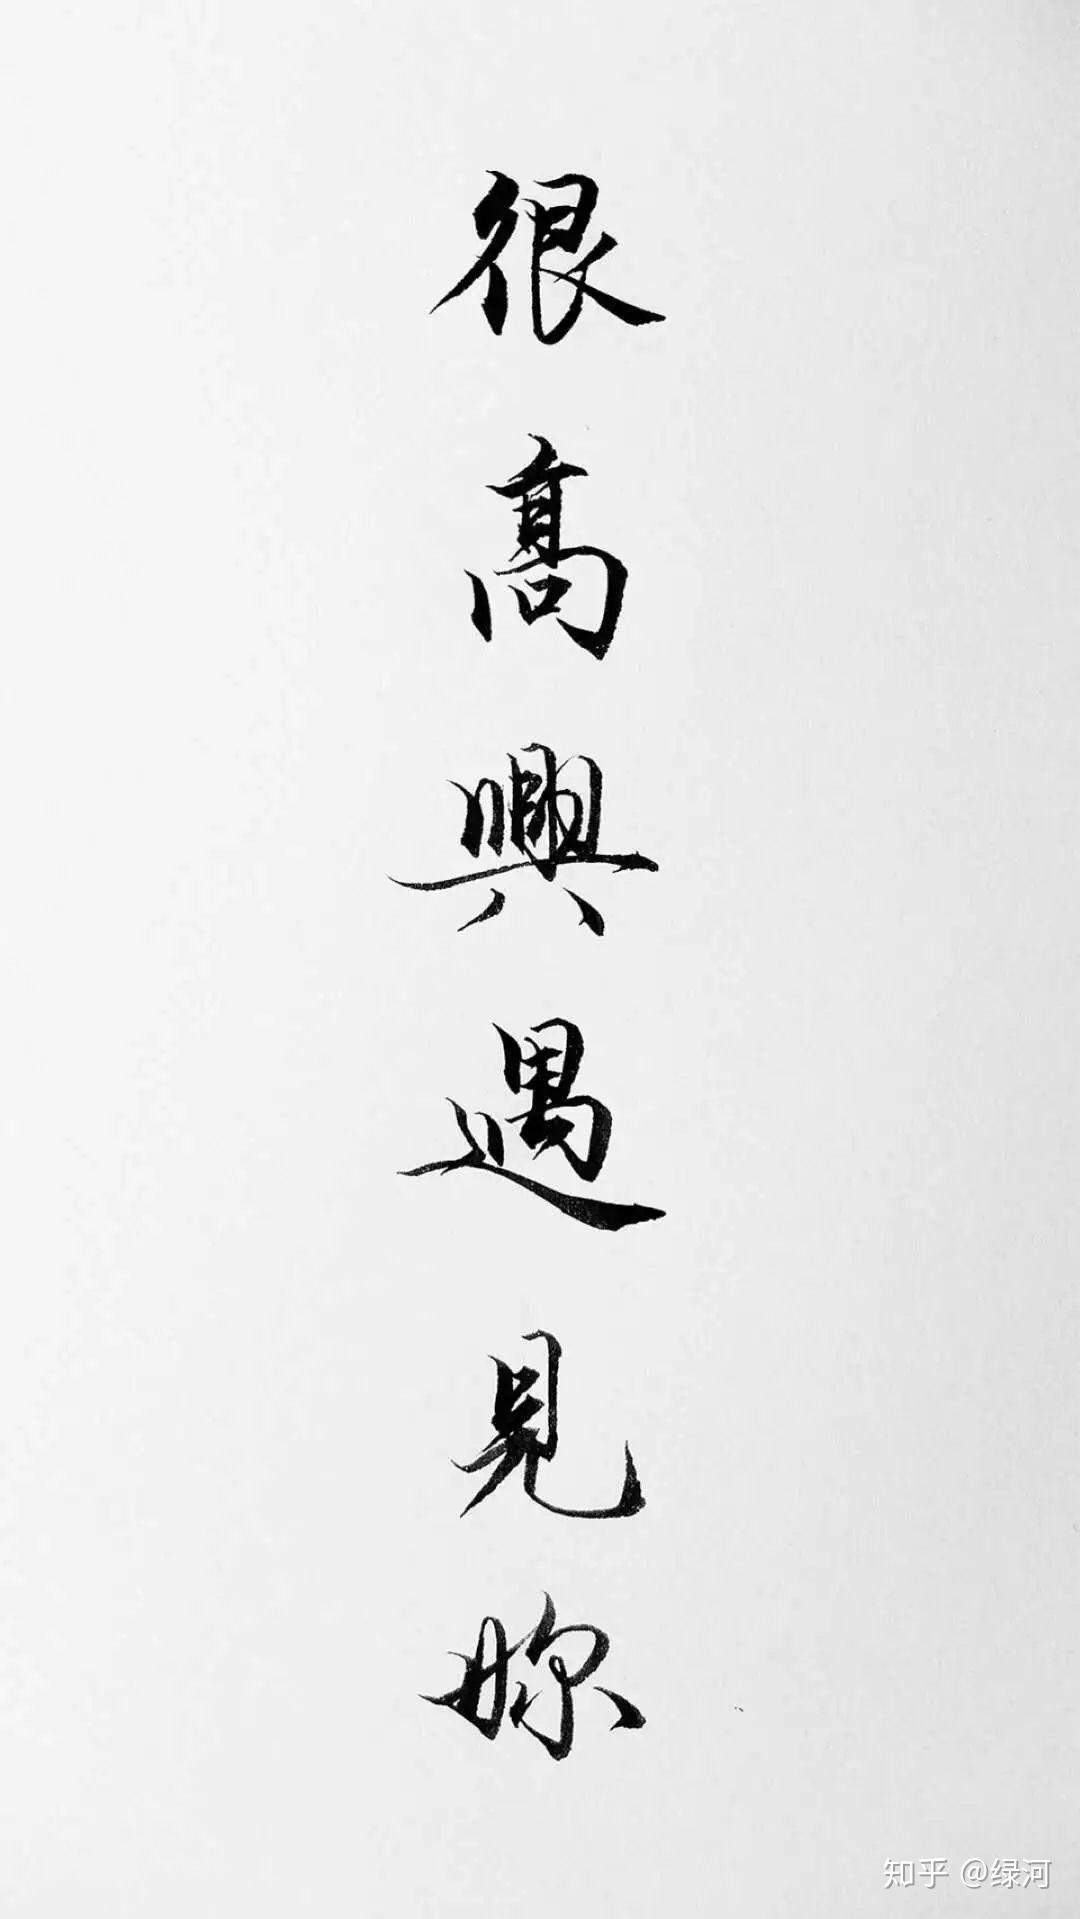 很高興遇見妳
知乎 @绿河